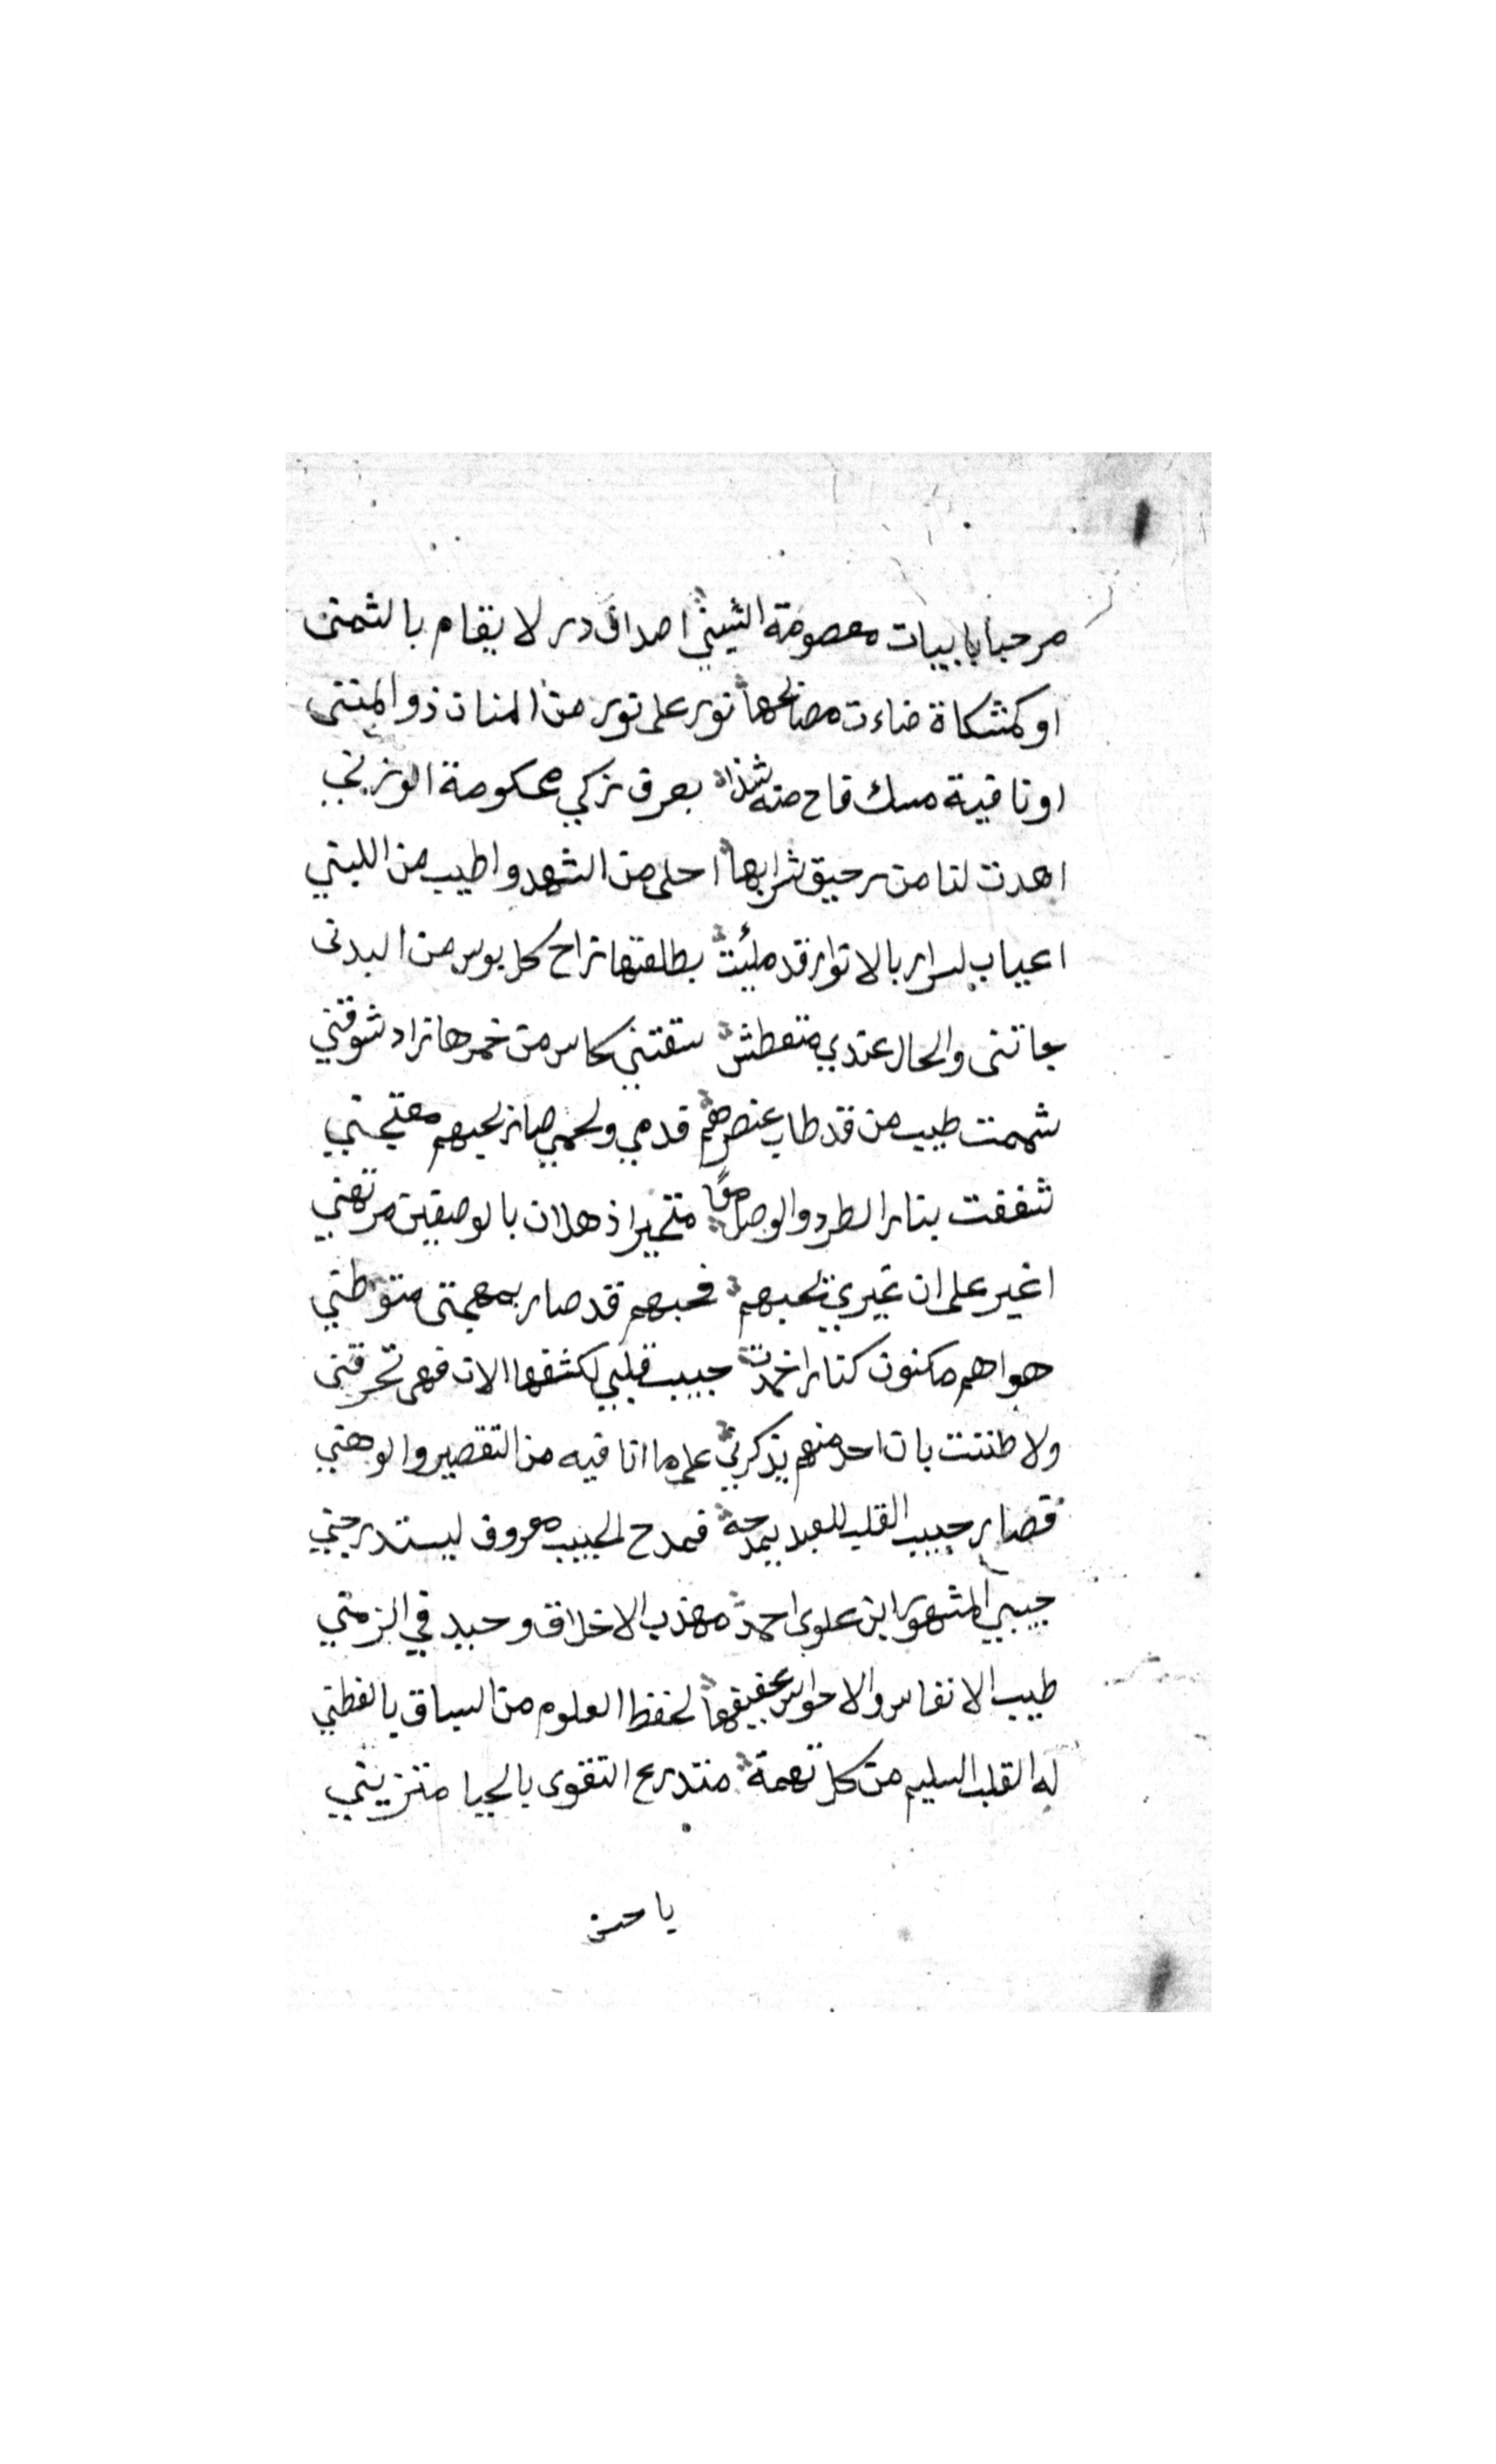 مرحبا بابيات معصومة الثيني اصداف در لا يقام بالثمنى
او كمشكاة ضاءت مصابحها نور على نور من المنان ذو المنتى
او نافية مسك فاح منه شذاه بعرف زكي محكومة الوزني
اهدت لنا من رحيق شرابها احلى من الشهد واطيب من اللبني
اعياب اسرار بالانوار قد ملئت بطلعتها زاح كل بوس من البدنى
جاتنى والحال عندي متعطش سقتني كاس من خمرها زاد شوقني
شممت طيب من قد طاب عنصرهم قدمي ولحمي صار لحبهم معتجني
شغفت بنار الطرد والوصل معًا متحيرا ذهلان بالوصفين مرتهني
اغير على ان غيري يحبهم فحبهم قد صار بمهجتى متوطني
هواهم مكنون كنار اخمدت حبيب قلبي لكشفها الان فهى تحرقنى
ولا طننت بان احد منهم يذكرني على ما انا فيه من التقصير والوهني
فصار حبيب القلب للعبد يمدحه فمدح الحبيب معروف ليستدرجني
حبيبي المشهور ابن علوى احمد مهذب الاخلاق وحيد في الزمني
طيب الانفاس والاحواس حقيقها لحفظ العلوم من السباق بالفطني
له القلب السليم من كل تهمة منتدرع التقوى بالحيا متزيني
يا حسن